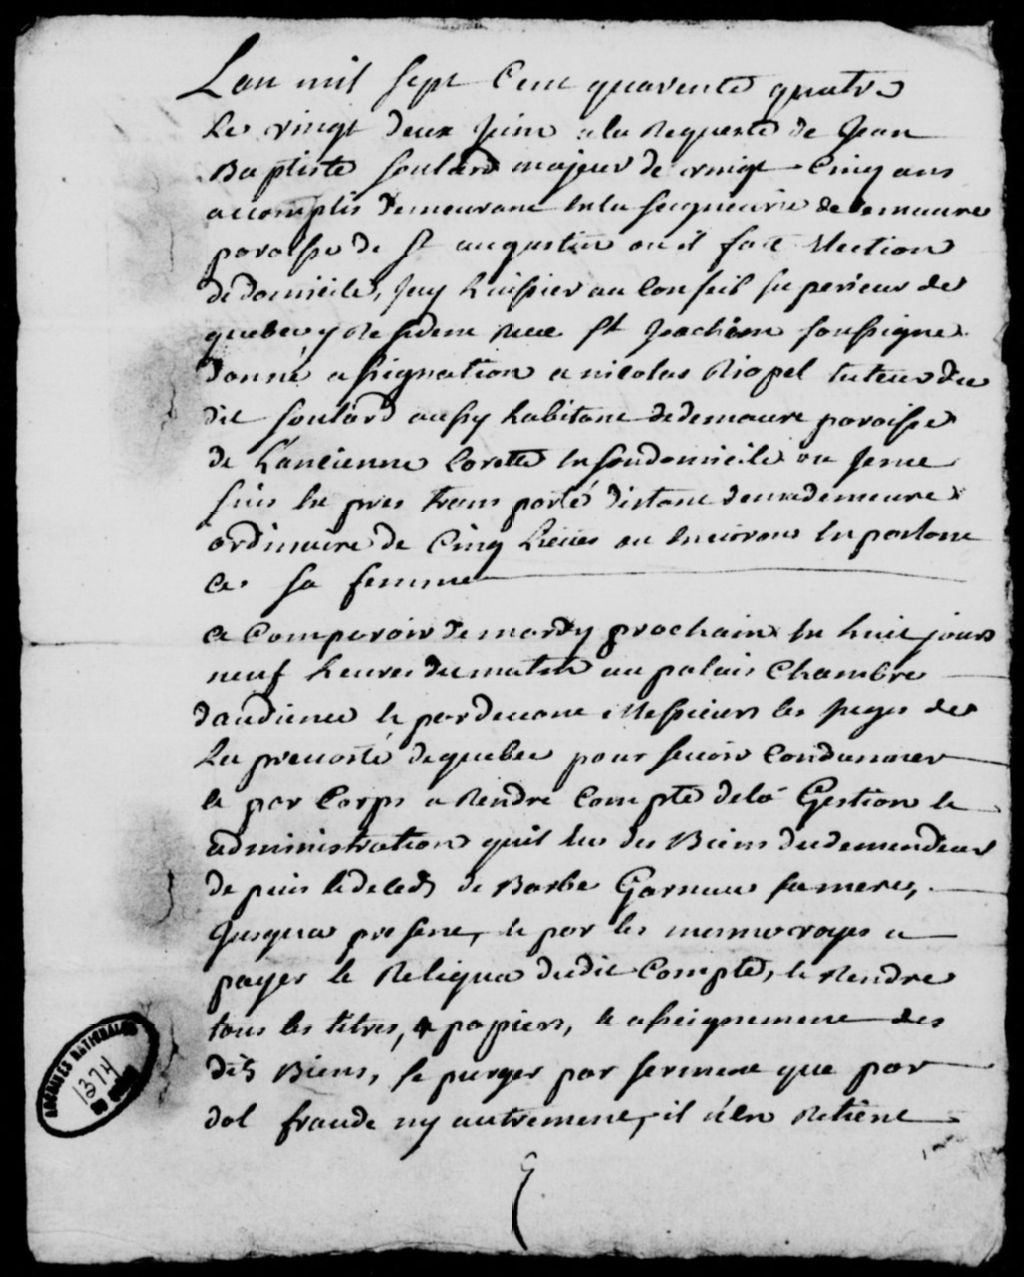 Lan mil sept Cent quarente quatre
Le vingt deux Juin a la Requeste de Jean
Baptiste Soulard majeur de vingt Cinq ans
accomplis demeurant en la seigneurie de demaure
paroisse de St augustin ou il fait Election
de domicile, Jay huissier au Conseil superieur de
quebec y Residem Rue St Joachim soussigne
donné assignation a nicolas Riopel tuteur du
dit Soulard aussy habitant de demaure paroisse
de Lancienne Lorette en son domicile ou Je me
suis Expres transporté distant de ma demeure
ordinaire de Cinq Lieües ou Environ En parlant
a sa femme
a Comparoir de mardy prochain En huit jours
neuf heures du matin au palais Chambre
daudience Et pardevant Messieurs les Juges de
La prevosté de quebec pour se voir Condamner
Et par Corps a Rendre Compte de la Gestion Et
administration quil Eu des Biens du demandeur
depuis le deceds de Barbe Garnau sa mere,
Jusqua present, Et par les memes voyes a
payer le Reliqua dudit Compte, Et Rendre
tous les titres, & papiers, Et asseignement des
dts Biens, se purger par serment que par
dol fraude ny autrement, il n'En Retient
ARCHIVES NATIONALES
1374
DU QUÉBEC